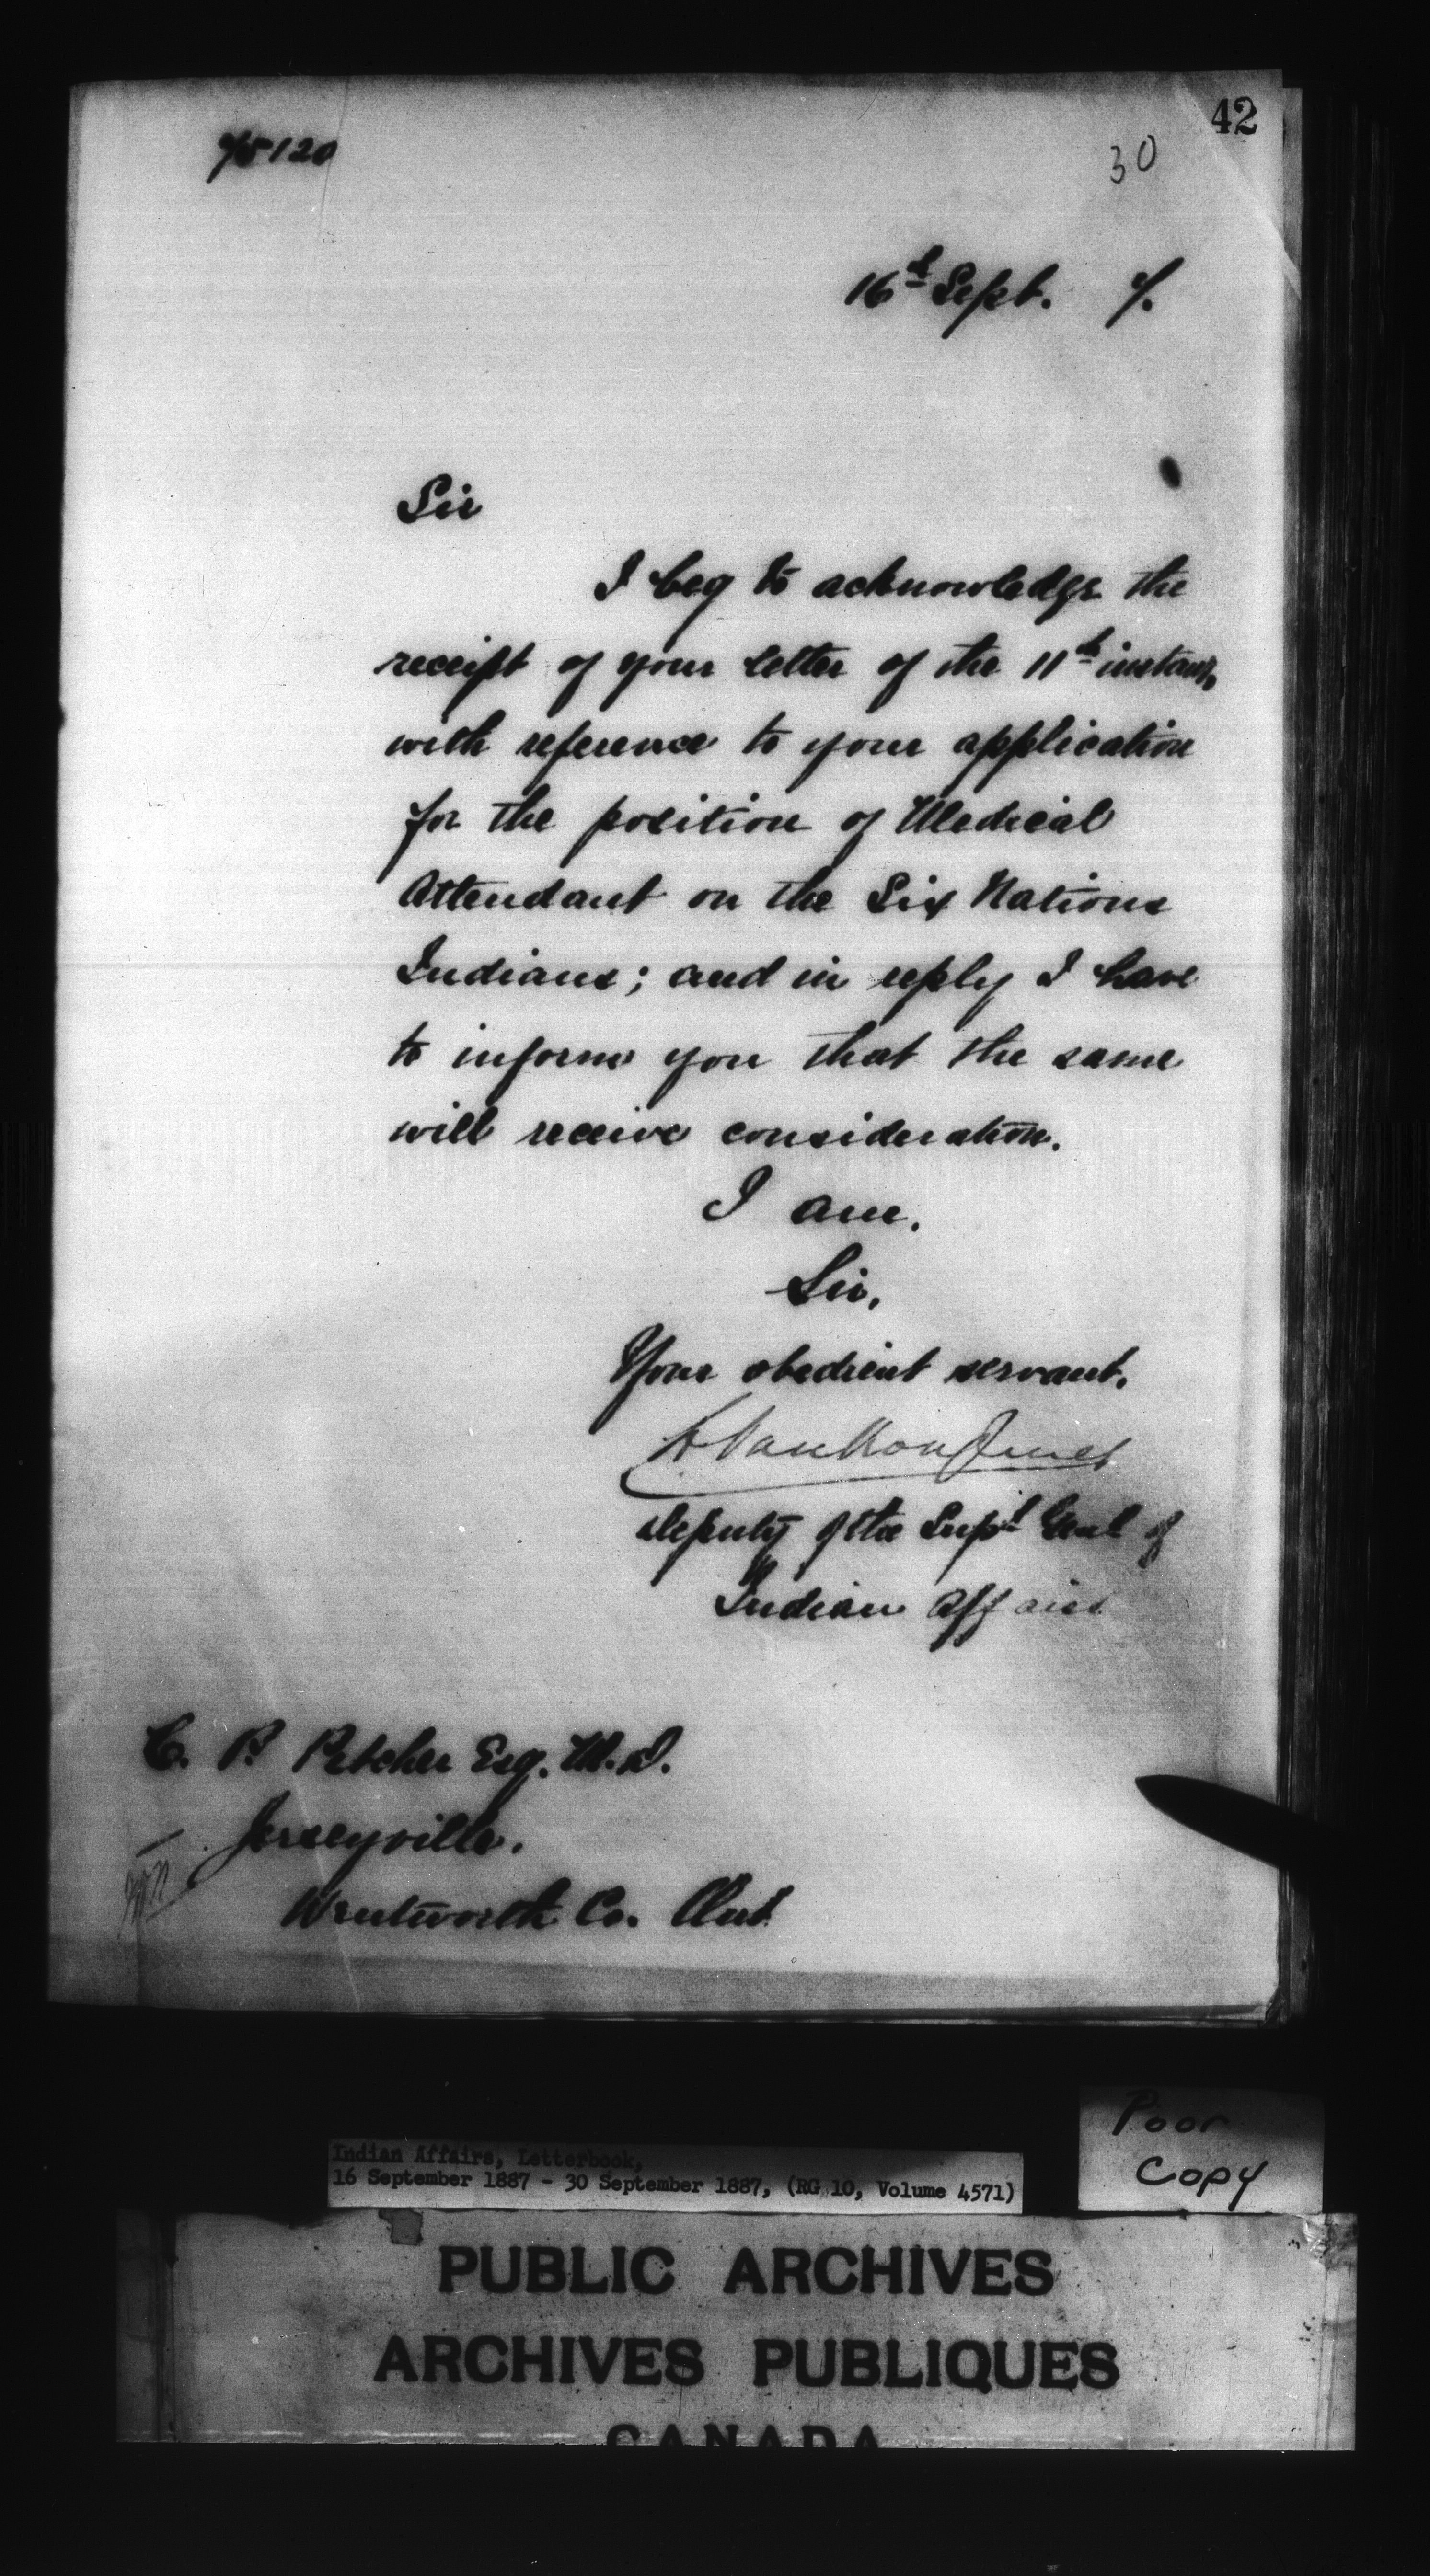 42
30
16th Sept. 7.
Sir
I beg to acknowledge the
receipt of your letter of the 11th instant,
with reference to your application
for the position of Medical
Attendant on the Six Nations
Indians; and in reply I have
to inform you that the same
will receive consideration.
I am.
Sir.
Your obedient servant.
L VanKoughnet
Deputy of the Supt Genl of
Indian Affairs
C. P. Petcher Esq. M.D.
Jerseyville.
Wentworth Co. Ont.
Indian Affairs, Letterbook,
16 September 1887 - 30 September 1887, (RG 10, Volume 4571)
Poor
Copy
PUBLIC ARCHIVES
ARCHIVES PUBLIQUES
CANADA